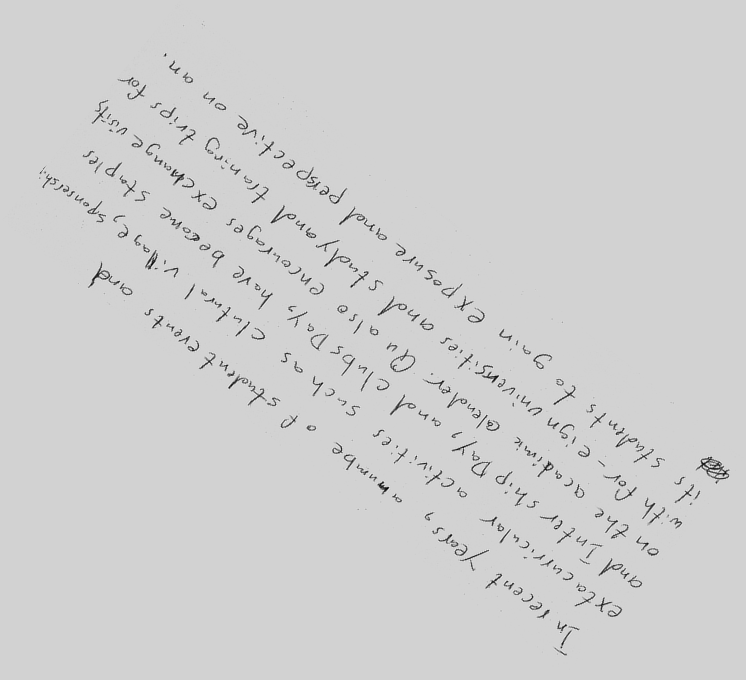 In recent years, anumbe of student events and
extacurricular activities such as clutural village, sponsershi
and Inter ship Day, and clubs Day, have become staples
on the acadimic calender. Qu also encourages exchange visits
with for-eign universities and study and training trips for
its students to gain exposure and perspective on an.